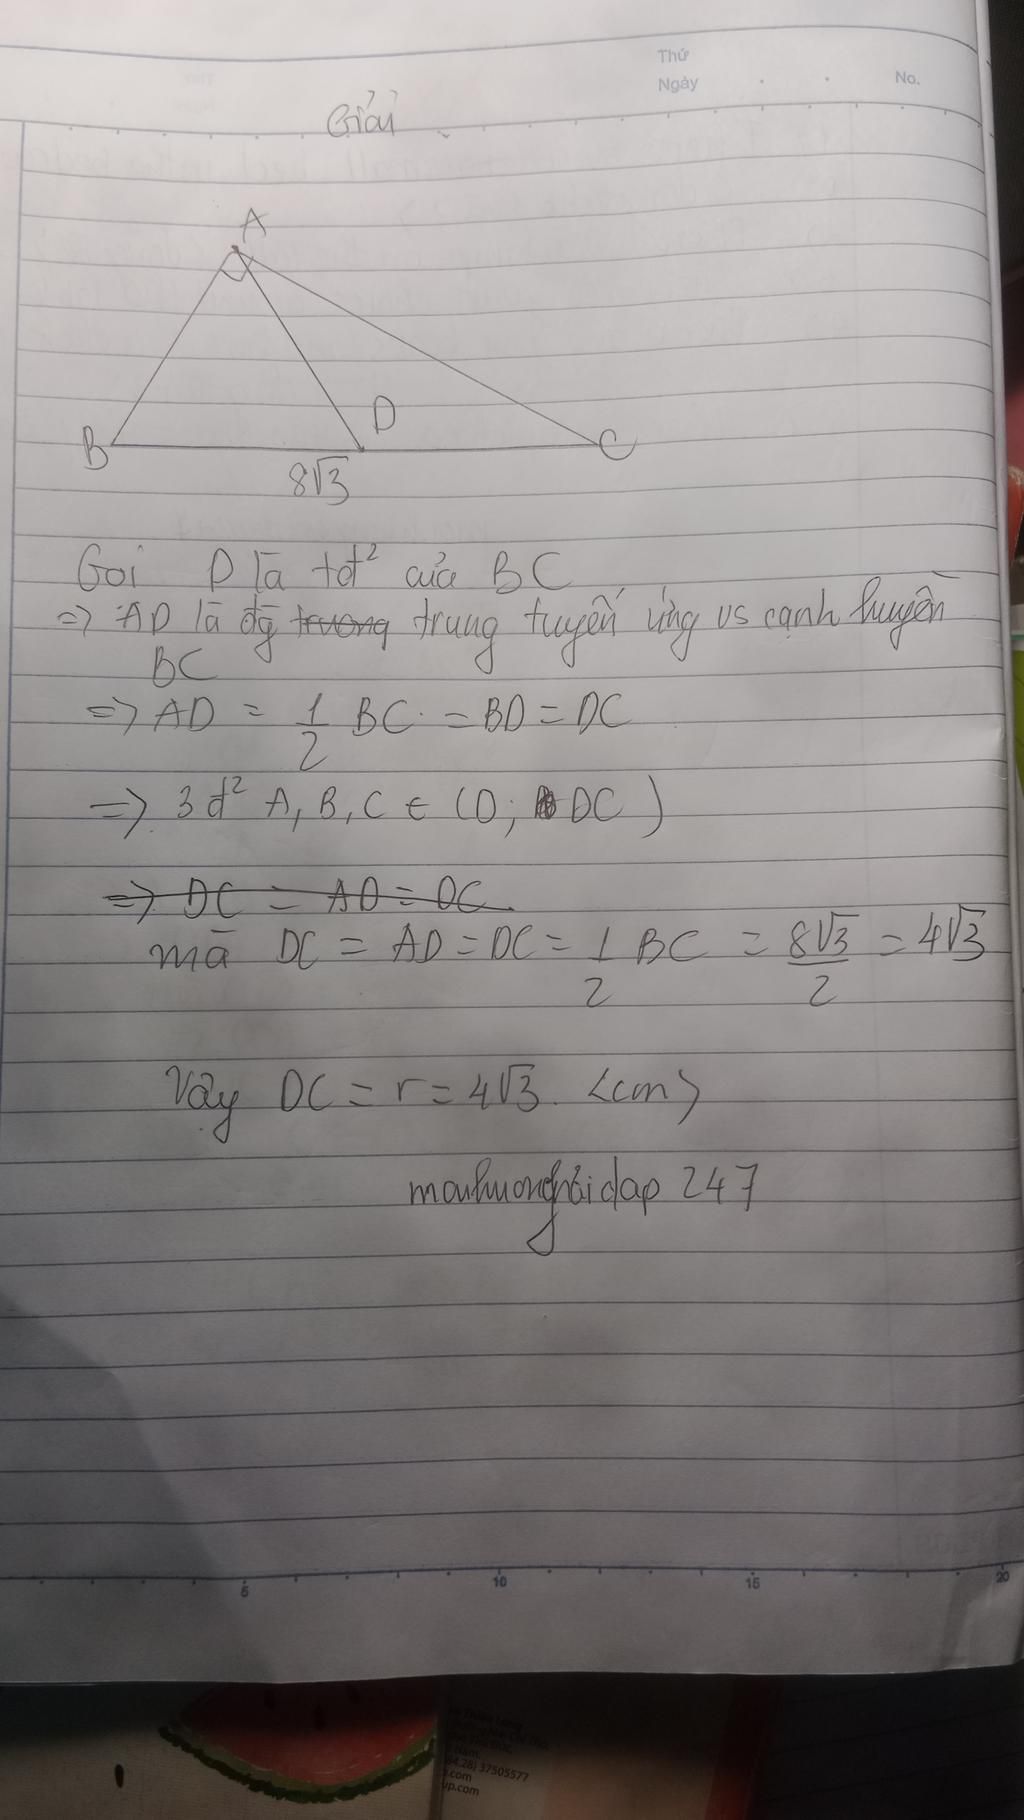 Thứ
Ngày
No.
Giải
A
B
D
C
8√3
Gọi D là tđ² của BC
=> AD là đg̃ trương trung tuyến ứng vs cạnh huyền
BC
=> AD = 1/2 BC = BD = DC
=> 3 đ² A, B, C ∈ (D; DC)
=> DC = AD = DC
mà DC = AD = DC = 1/2 BC = 8√3/2 = 4√3
Vậy DC = r = 4√3. <cm>
dap 247
5 10 15 20
64.28) 37505577
.com
up.com